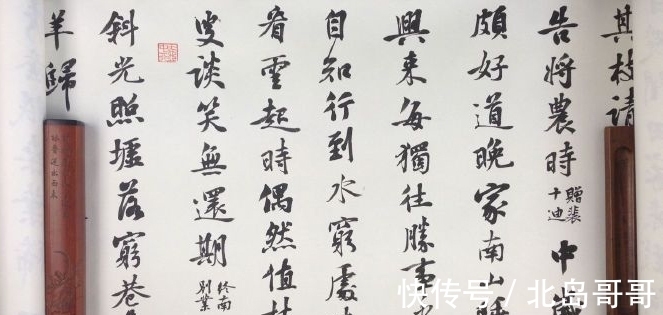 其枝請
告將農時 贈裴十迪 中歲
頗好道晚家南山陲
興來每獨往勝事
自知行到水窮處
看雲起時偶然值林
叟談笑無還期 終南別業
斜光照墟落窮巷
羊歸
快传号 / 北岛哥哥